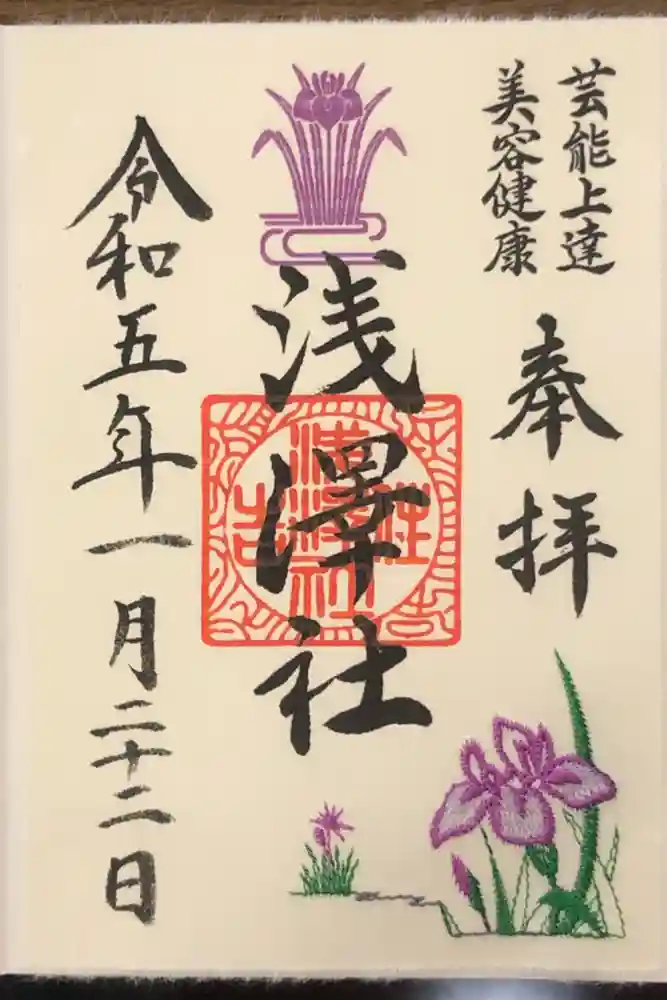 芸能上達
美容健康
奉拝
浅澤社
住吉
浅澤社
令和五年一月二十二日